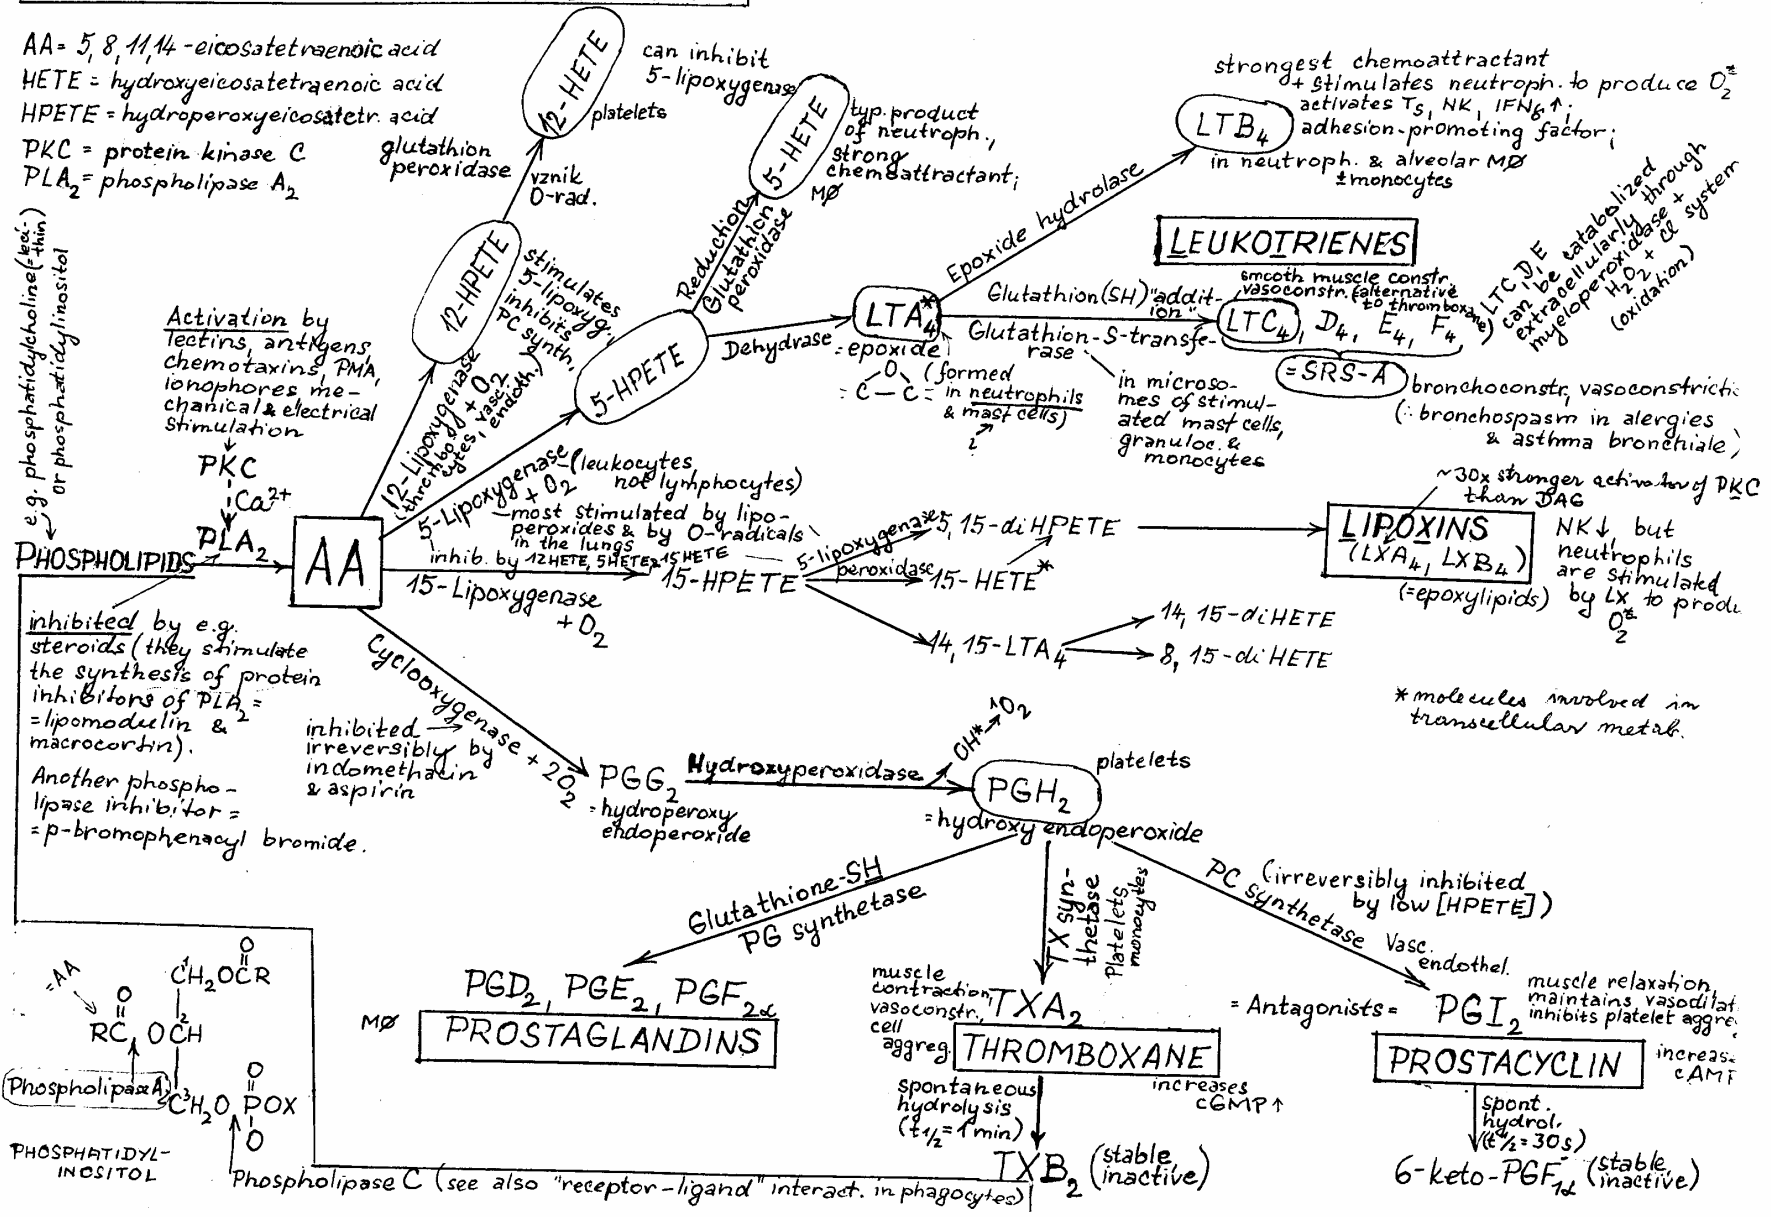 AA = 5, 8, 11, 14 - eicosatetraenoic acid
HETE = hydroxyeicosatetraenoic acid
HPETE = hydroperoxyeicosatetr. acid
PKC = protein kinase C
PLA2 = phospholipase A2
e.g. phosphatidylcholine (= leci-
thin)
or phosphatidylinositol
Activation by
lectins, antigens,
chemotaxins, PMA,
ionophores me-
chanical & electrical
stimulation
PKC
Ca2+
PLA2
PHOSPHOLIPIDS
AA
inhibited by e.g.
steroids (they stimulate
the synthesis of protein
inhibitors of PLA2 =
= lipomodulin &
macrocortin).
Another phospho-
lipase inhibitor =
= p-bromophenacyl bromide.
12-Lipoxygenase
(thrombo- + O2
cytes, vasc.
endoth.)
12-HPETE
stimulates
5-lipoxyg.;
inhibits
PC synth.
glutathion
peroxidase
vznik
O-rad.
12-HETE
platelets
can inhibit
5-lipoxygenase
5-Lipoxygenase
+ O2
(leukocytes
not lymphocytes)
5-HPETE
Reduction
Glutathion
peroxidase
5-HETE
typ. product
of neutroph.,
strong
chemoattractant;
MØ
Dehydrase
LTA4*
= epoxide
O
= C - C =
(formed
in neutrophils
& mast cells)
?
Epoxide hydrolase
LTB4
strongest chemoattractant
+ stimulates neutroph. to produce O2
activates Ts, NK, IFN ↑;
adhesion-promoting factor;
in neutroph. & alveolar MØ
± monocytes
LEUKOTRIENES
smooth muscle constr.
vasoconstr. (alternative
to thromboxane)
Glutathion (SH) "addit-
ion"
Glutathion-S-transfe-
rase
in microso-
mes of stimul-
ated mast cells,
granuloc. &
monocytes
LTC4, D4, E4, F4,
= SRS-A
LTC, D, E
can be catabolized
extracellularly through
myeloperoxidase +
H2O2 + Cl system
(oxidation)
bronchoconstr., vasoconstrictic
(∴ bronchospasm in alergies
& asthma bronchiale)
most stimulated by lipo-
peroxides & by O-radicals
in the lungs
inhib. by 12HETE, 5HETE & 15HETE
15-Lipoxygenase
+ O2
15-HPETE
5-lipoxygenase
peroxidase
5, 15-diHPETE
15-HETE*
14, 15-LTA4
14, 15-diHETE
8, 15-diHETE
~30x stronger activator of PKC
than DAG
LIPOXINS
(LXA4, LXB4)
(=epoxylipids)
NK↓, but
neutrophils
are stimulated
by LX to produ
O2
* molecules involved in
transcellular metab.
Cyclooxygenase + 2O2
inhibited
irreversibly by
indomethacin
& aspirin
PGG2
= hydroperoxy
endoperoxide
Hydroxyperoxidase
OH*
1O2
PGH2
platelets
= hydroxy endoperoxide
Glutathione-SH
PG synthetase
PGD2, PGE2, PGF2α
MØ
PROSTAGLANDINS
TX syn-
thetase
Platelets,
monocytes
muscle
contraction,
vasoconstr.,
cell
aggreg.
TXA2
THROMBOXANE
increases
cGMP↑
spontaneous
hydrolysis
(t1/2 = 1 min)
TXB2 (stable
inactive)
PC synthetase
(irreversibly inhibited
by low [HPETE])
Vasc.
endothel.
= Antagonists =
PGI2
muscle relaxation,
maintains vasodilat
inhibits platelet aggre
PROSTACYCLIN
increas
cAMP
spont.
hydrol.
(t1/2 = 30s)
6-keto-PGF1α (stable,
inactive)
=AA
O
1
CH2OCR
O
RC OCH
2
Phospholipase A2
3
CH2O P OX
O
O
PHOSPHATIDYL-
INOSITOL
Phospholipase C (see also "receptor-ligand" interact. in phagocytes)